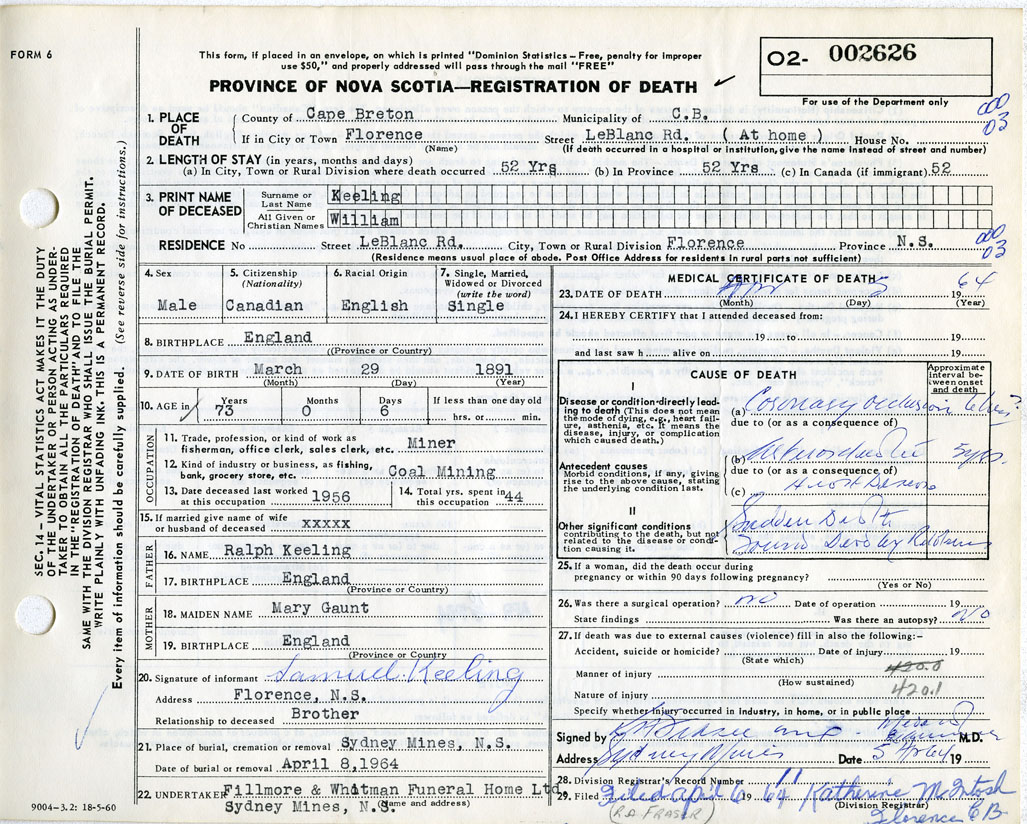 FORM 6
This form, if placed in an envelope, on which is printed "Dominion Statistics – Free, penalty for improper
use $50," and properly addressed will pass through the mail "FREE"
O2- 002626
PROVINCE OF NOVA SCOTIA—REGISTRATION OF DEATH ✓
For use of the Department only
000
03
1. PLACE OF DEATH County of Cape Breton Municipality of C.B.
If in City or Town Florence Street LeBlanc Rd. ( At home ) House No.
(Name) (If death occurred in a hospital or institution, give the name instead of street and number)
2. LENGTH OF STAY (in years, months and days)
(a) In City, Town or Rural Division where death occurred 52 Yrs (b) In Province 52 Yrs (c) In Canada (if immigrant) 52
3. PRINT NAME OF DECEASED Surname or Last Name Keeling
All Given or Christian Names William
000
03
RESIDENCE No Street LeBlanc Rd. City, Town or Rural Division Florence Province N.S.
(Residence means usual place of abode. Post Office Address for residents in rural parts not sufficient)
4. Sex
Male
5. Citizenship
(Nationality)
Canadian
6. Racial Origin
English
7. Single, Married,
Widowed or Divorced
(write the word)
Single
8. BIRTHPLACE England
((Province or Country)
9. DATE OF BIRTH March 29 1891
(Month) (Day) (Year)
10. AGE in Years Months Days If less than one day old
73 0 6 hrs. or min.
OCCUPATION
11. Trade, profession, or kind of work as
fisherman, office clerk, sales clerk, etc. Miner
12. Kind of industry or business, as fishing,
bank, grocery store, etc. Coal Mining
13. Date deceased last worked
at this occupation 1956
14. Total yrs. spent in
this occupation 44
15. If married give name of wife
or husband of deceased xxxxx
FATHER
16. NAME Ralph Keeling
17. BIRTHPLACE England
(Province or Country)
MOTHER
18. MAIDEN NAME Mary Gaunt
19. BIRTHPLACE England
(Province or Country
20. Signature of informant Samuel Keeling
Address Florence, N.S.
Relationship to deceased Brother
21. Place of burial, cremation or removal Sydney Mines, N.S.
Date of burial or removal April 8,1964
22. UNDERTAKER Fillmore & Whitman Funeral Home Ltd
Sydney Mines, N.S.
(Name and address)
MEDICAL CERTIFICATE OF DEATH
23. DATE OF DEATH Apr 5 1964
(Month) (Day) (Year)
24. I HEREBY CERTIFY that I attended deceased from:
19 to 19
and last saw h alive on 19
CAUSE OF DEATH
Approximate
interval be-
tween onset
and death
I
Disease or condition directly lead-
ing to death (This does not mean
the mode of dying, e.g., heart fail-
ure, asthenia, etc. It means the
disease, injury, or complication
which caused death.)
(a) Coronary occlusion
due to (or as a consequence of)
Antecedent causes
Morbid conditions, if any, giving
rise to the above cause, stating
the underlying condition last.
(b) 5 yrs
due to (or as a consequence of)
(c) Heart Disease
II
Other significant conditions
contributing to the death, but not
related to the disease or condi-
tion causing it.
Sudden Death
25. If a woman, did the death occur during
pregnancy or within 90 days following pregnancy?
(Yes or No)
26. Was there a surgical operation? no Date of operation 19
State findings Was there an autopsy? NO
27. If death was due to external causes (violence) fill in also the following:–
Accident, suicide or homicide? Date of injury 19
(State which)
Manner of injury 420.0
(How sustained)
Nature of injury 420.1
Specify whether injury occurred in industry, in home, or in public place
Signed by M.D.
Address Sydney Mines Date 5 Apr 64 19
28. Division Registrar's Record Number 11
29. Filed Filed april 6 1964 Katherine McIntosh
(Division Registrar)
(R.A. FRASER) Florence C.B
SEC. 14 – VITAL STATISTICS ACT MAKES IT THE DUTY
OF THE UNDERTAKER OR PERSON ACTING AS UNDER-
TAKER TO OBTAIN ALL THE PARTICULARS REQUIRED
IN THE "REGISTRATION OF DEATH" AND TO FILE THE
SAME WITH THE DIVISION REGISTRAR WHO SHALL ISSUE THE BURIAL PERMIT.
WRITE PLAINLY WITH UNFADING INK. THIS IS A PERMANENT RECORD.
Every item of information should be carefully supplied. (See reverse side for instructions.)
9004-3.2: 18-5-60